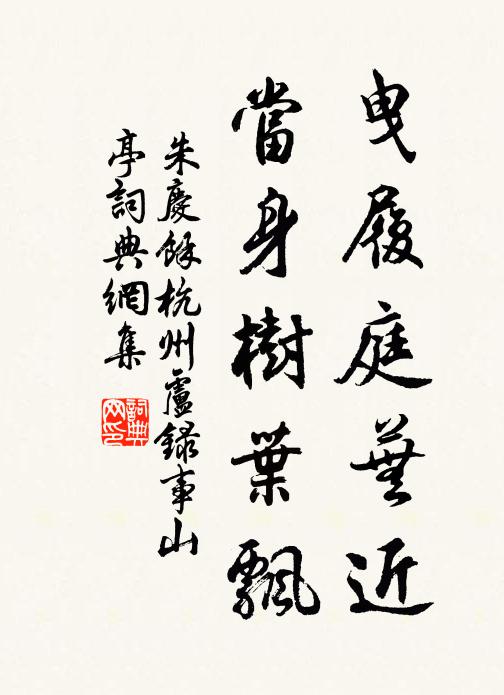 曳履庭蕪近
當身樹葉飄
朱慶餘杭州盧録事山
亭詞典網集
詞典網印